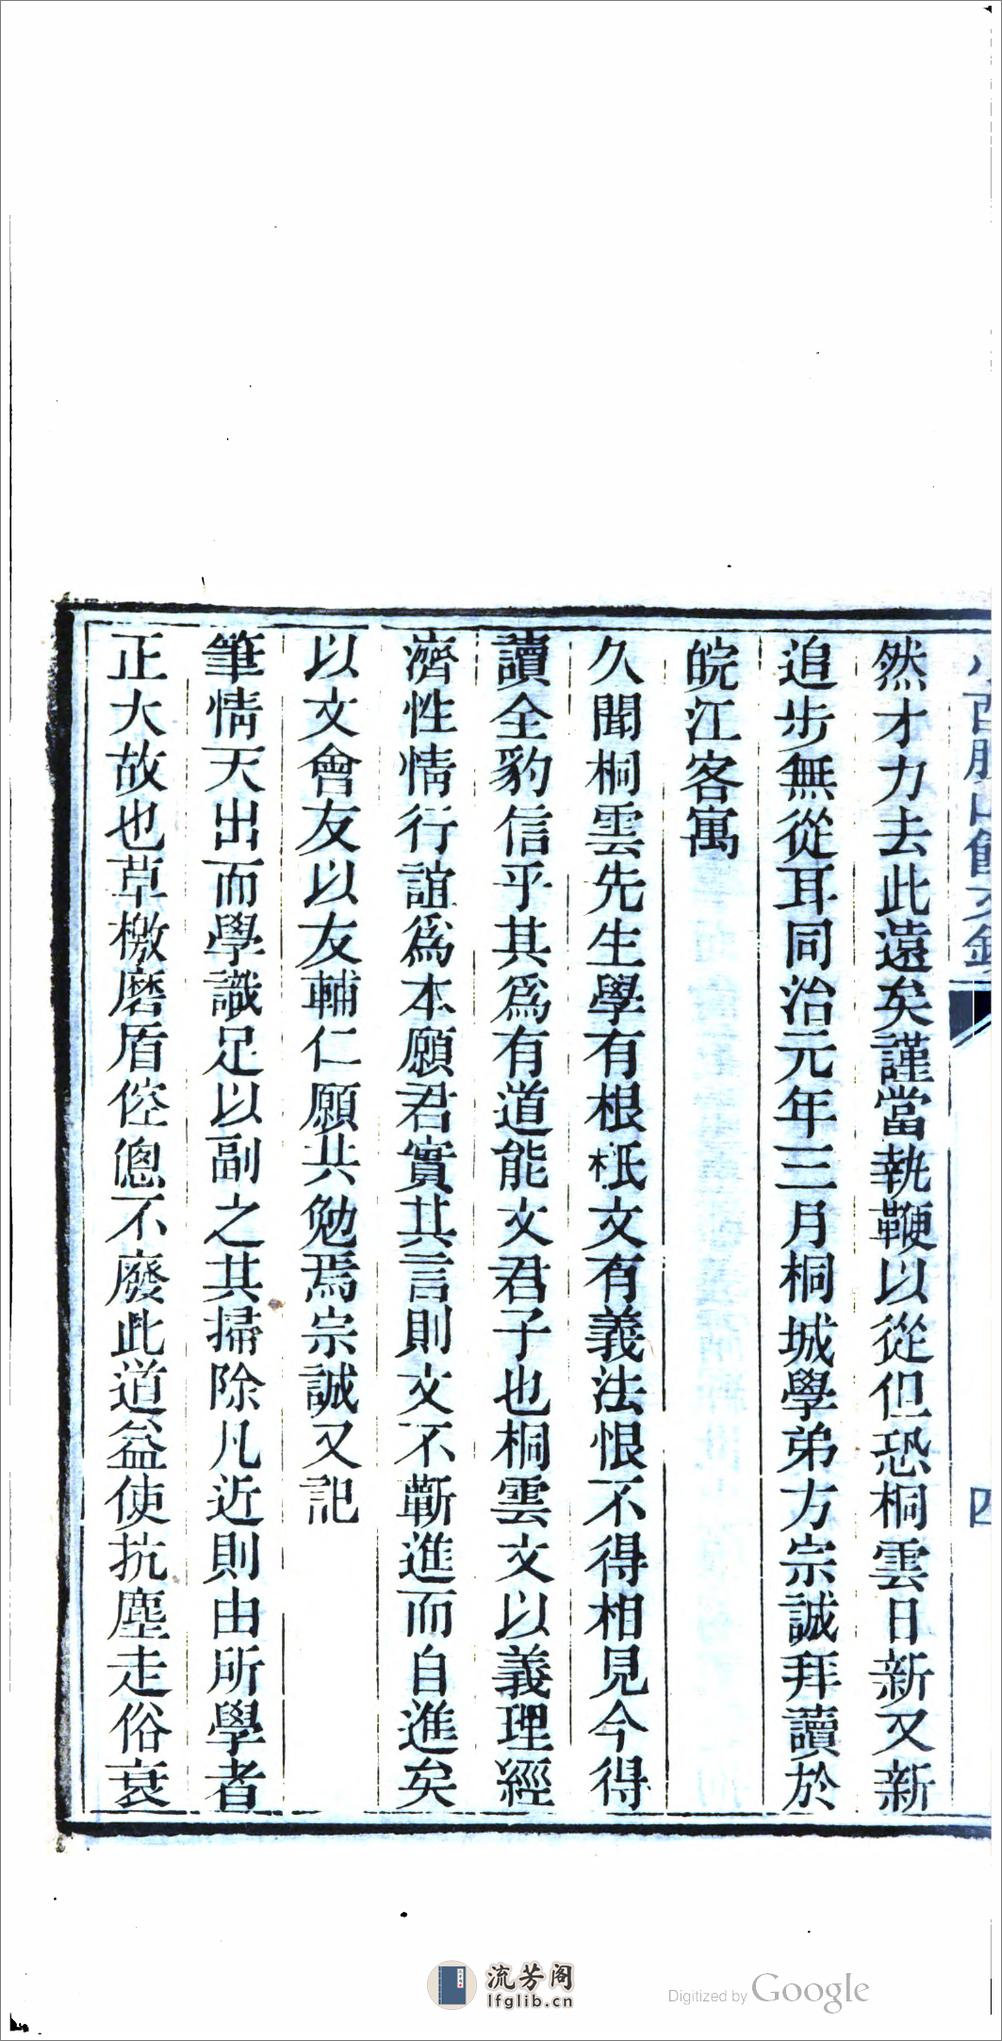 然才力去此遠矣謹當執鞭以從但恐桐雲日新又新
追步無從耳同治元年三月桐城學弟方宗誠拜讀於
皖江客寓
久聞桐雲先生學有根柢文有義法恨不得相見今得
讀全豹信乎其爲有道能文君子也桐雲文以義理經
濟性情行誼爲本願君實其言則文不蘄進而自進矣
以文會友以友輔仁願共勉焉宗誠又記
筆情天出而學識足以副之其掃除凡近則由所學者
正大故也草檄磨盾倥傯不廢此道益使抗塵走俗衰
四
流芳阁
lfglib.cn
Digitized by Google